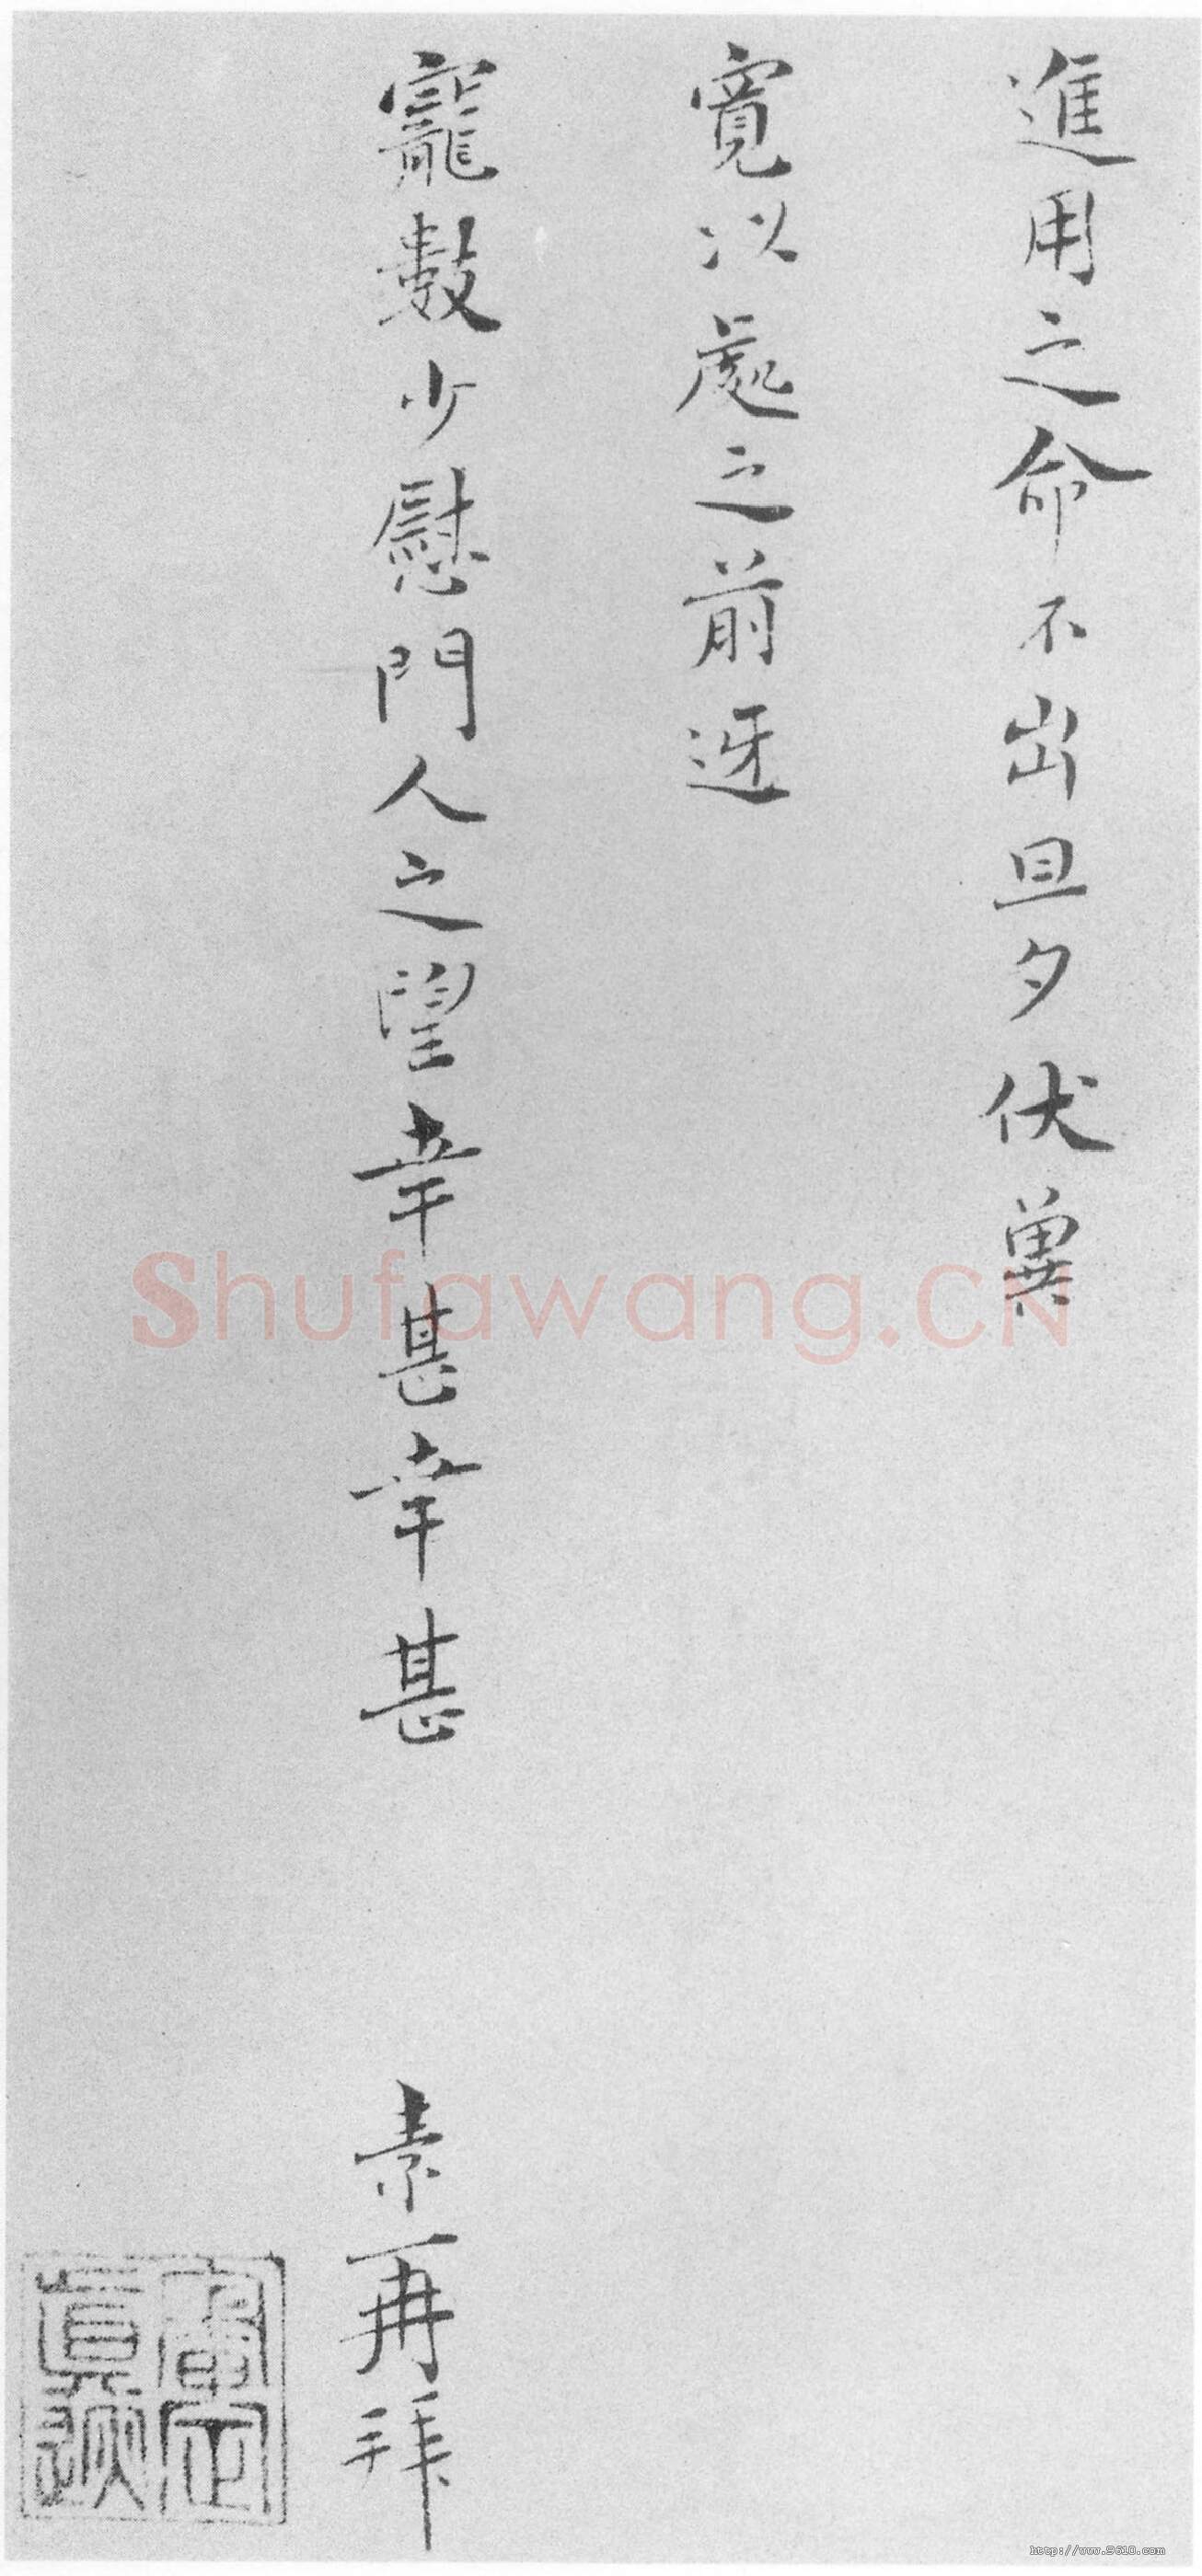 進用之命不出旦夕伏冀
寬以處之前迓
寵數少慰門人之望幸甚幸甚 素再拜
Shufawang.CN
http://www.9610.com